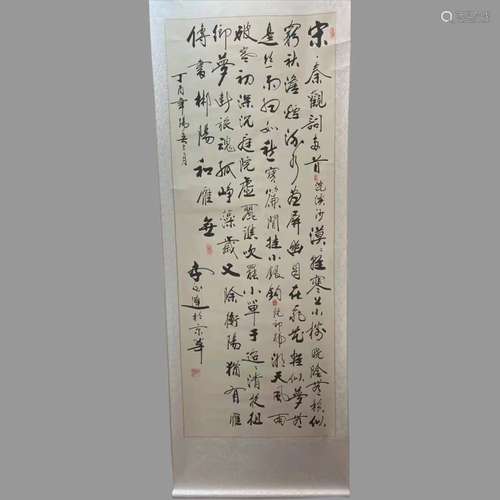 宋·秦觀詞两首 浣溪沙 漠漠輕寒上小樓曉陰無賴似
窮秋澹煙流水畫屏幽自在飛花輕似夢無
邊絲雨細如愁寶簾閒挂小銀鈎 阮郎歸 湘天風雨
破寒初深沉庭院虛麗譙吹罷小單于迢迢清夜徂
鄉夢斷旅魂孤崢嶸歲又除衡陽猶有雁
傳書郴陽和雁無
於京華